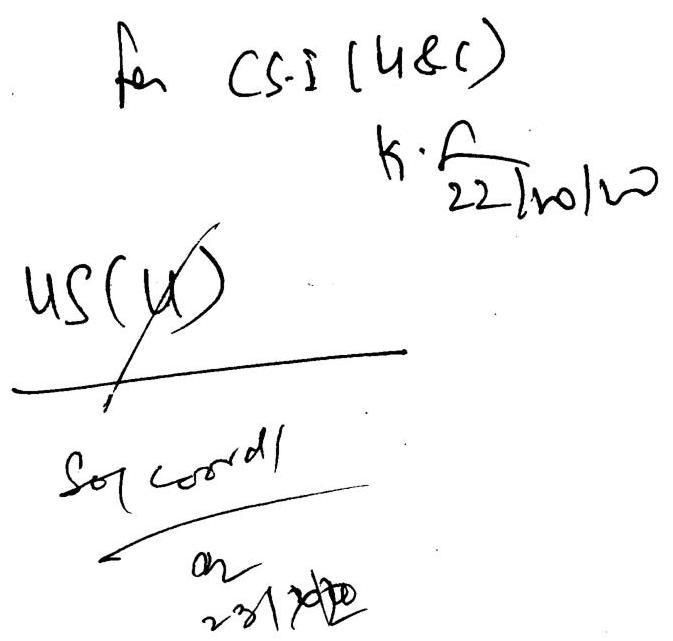 for CS-I (U&C)
K.
22/10/20
US(U)
So, coord/
23/10/20